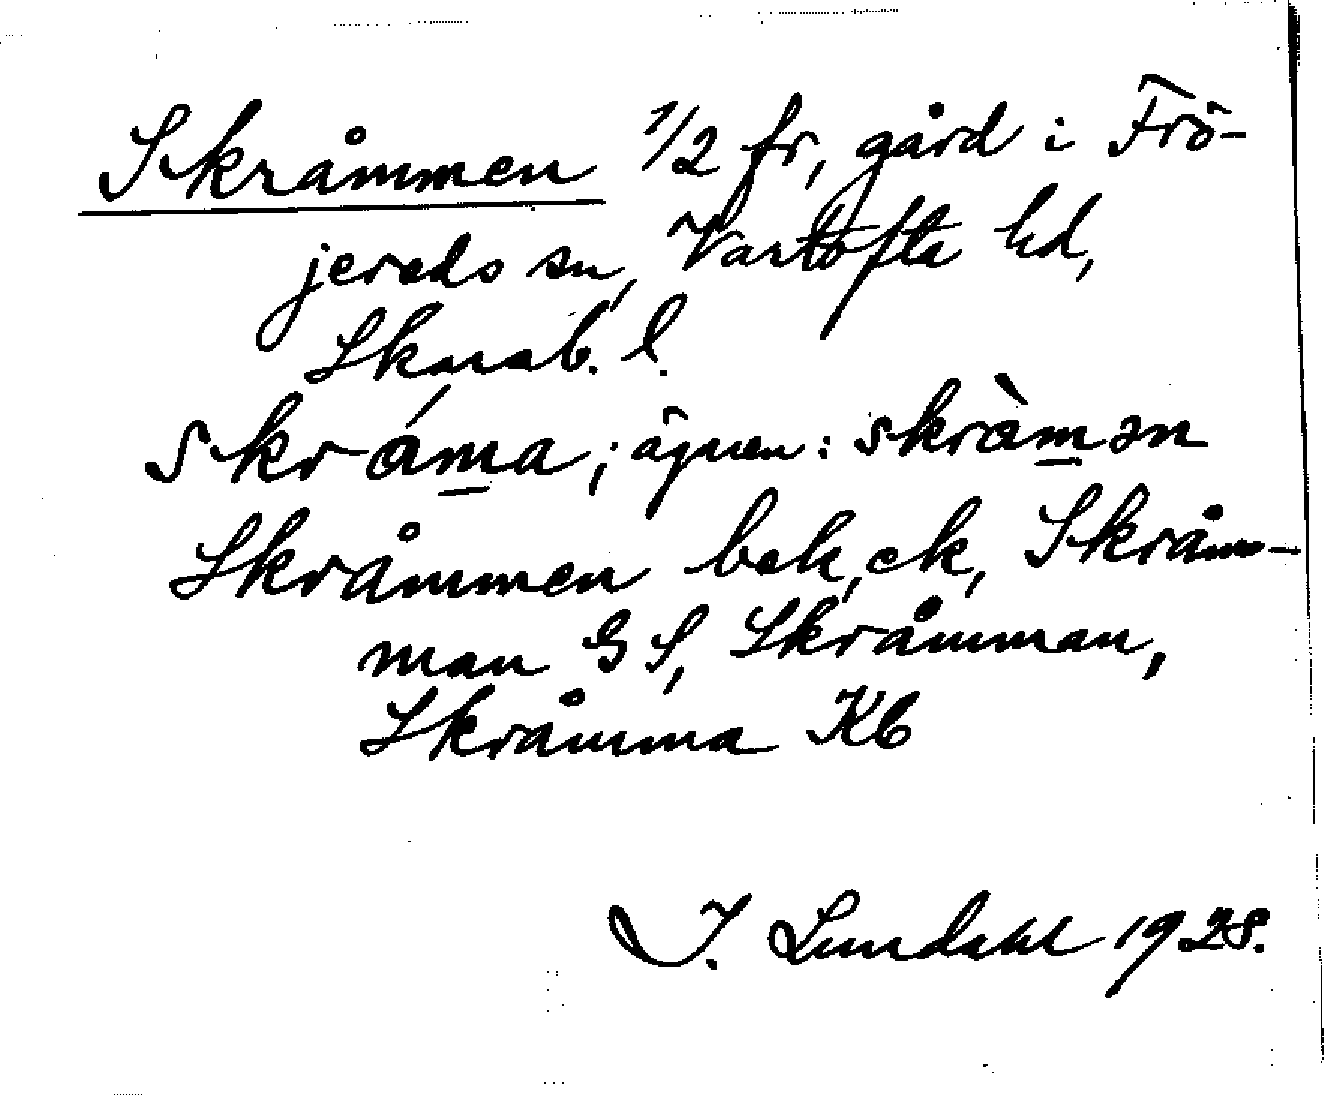 Skråmmen 1/2 fr, gård i Frö-
jereds sn, Vartofta hd,
Skarab. l.
skráma; ägnen: skràmən
Skråmmen bek, ek, Skråm-
man GS, Skråmman,
Skråmma Kb
I. Lundahl 1928.